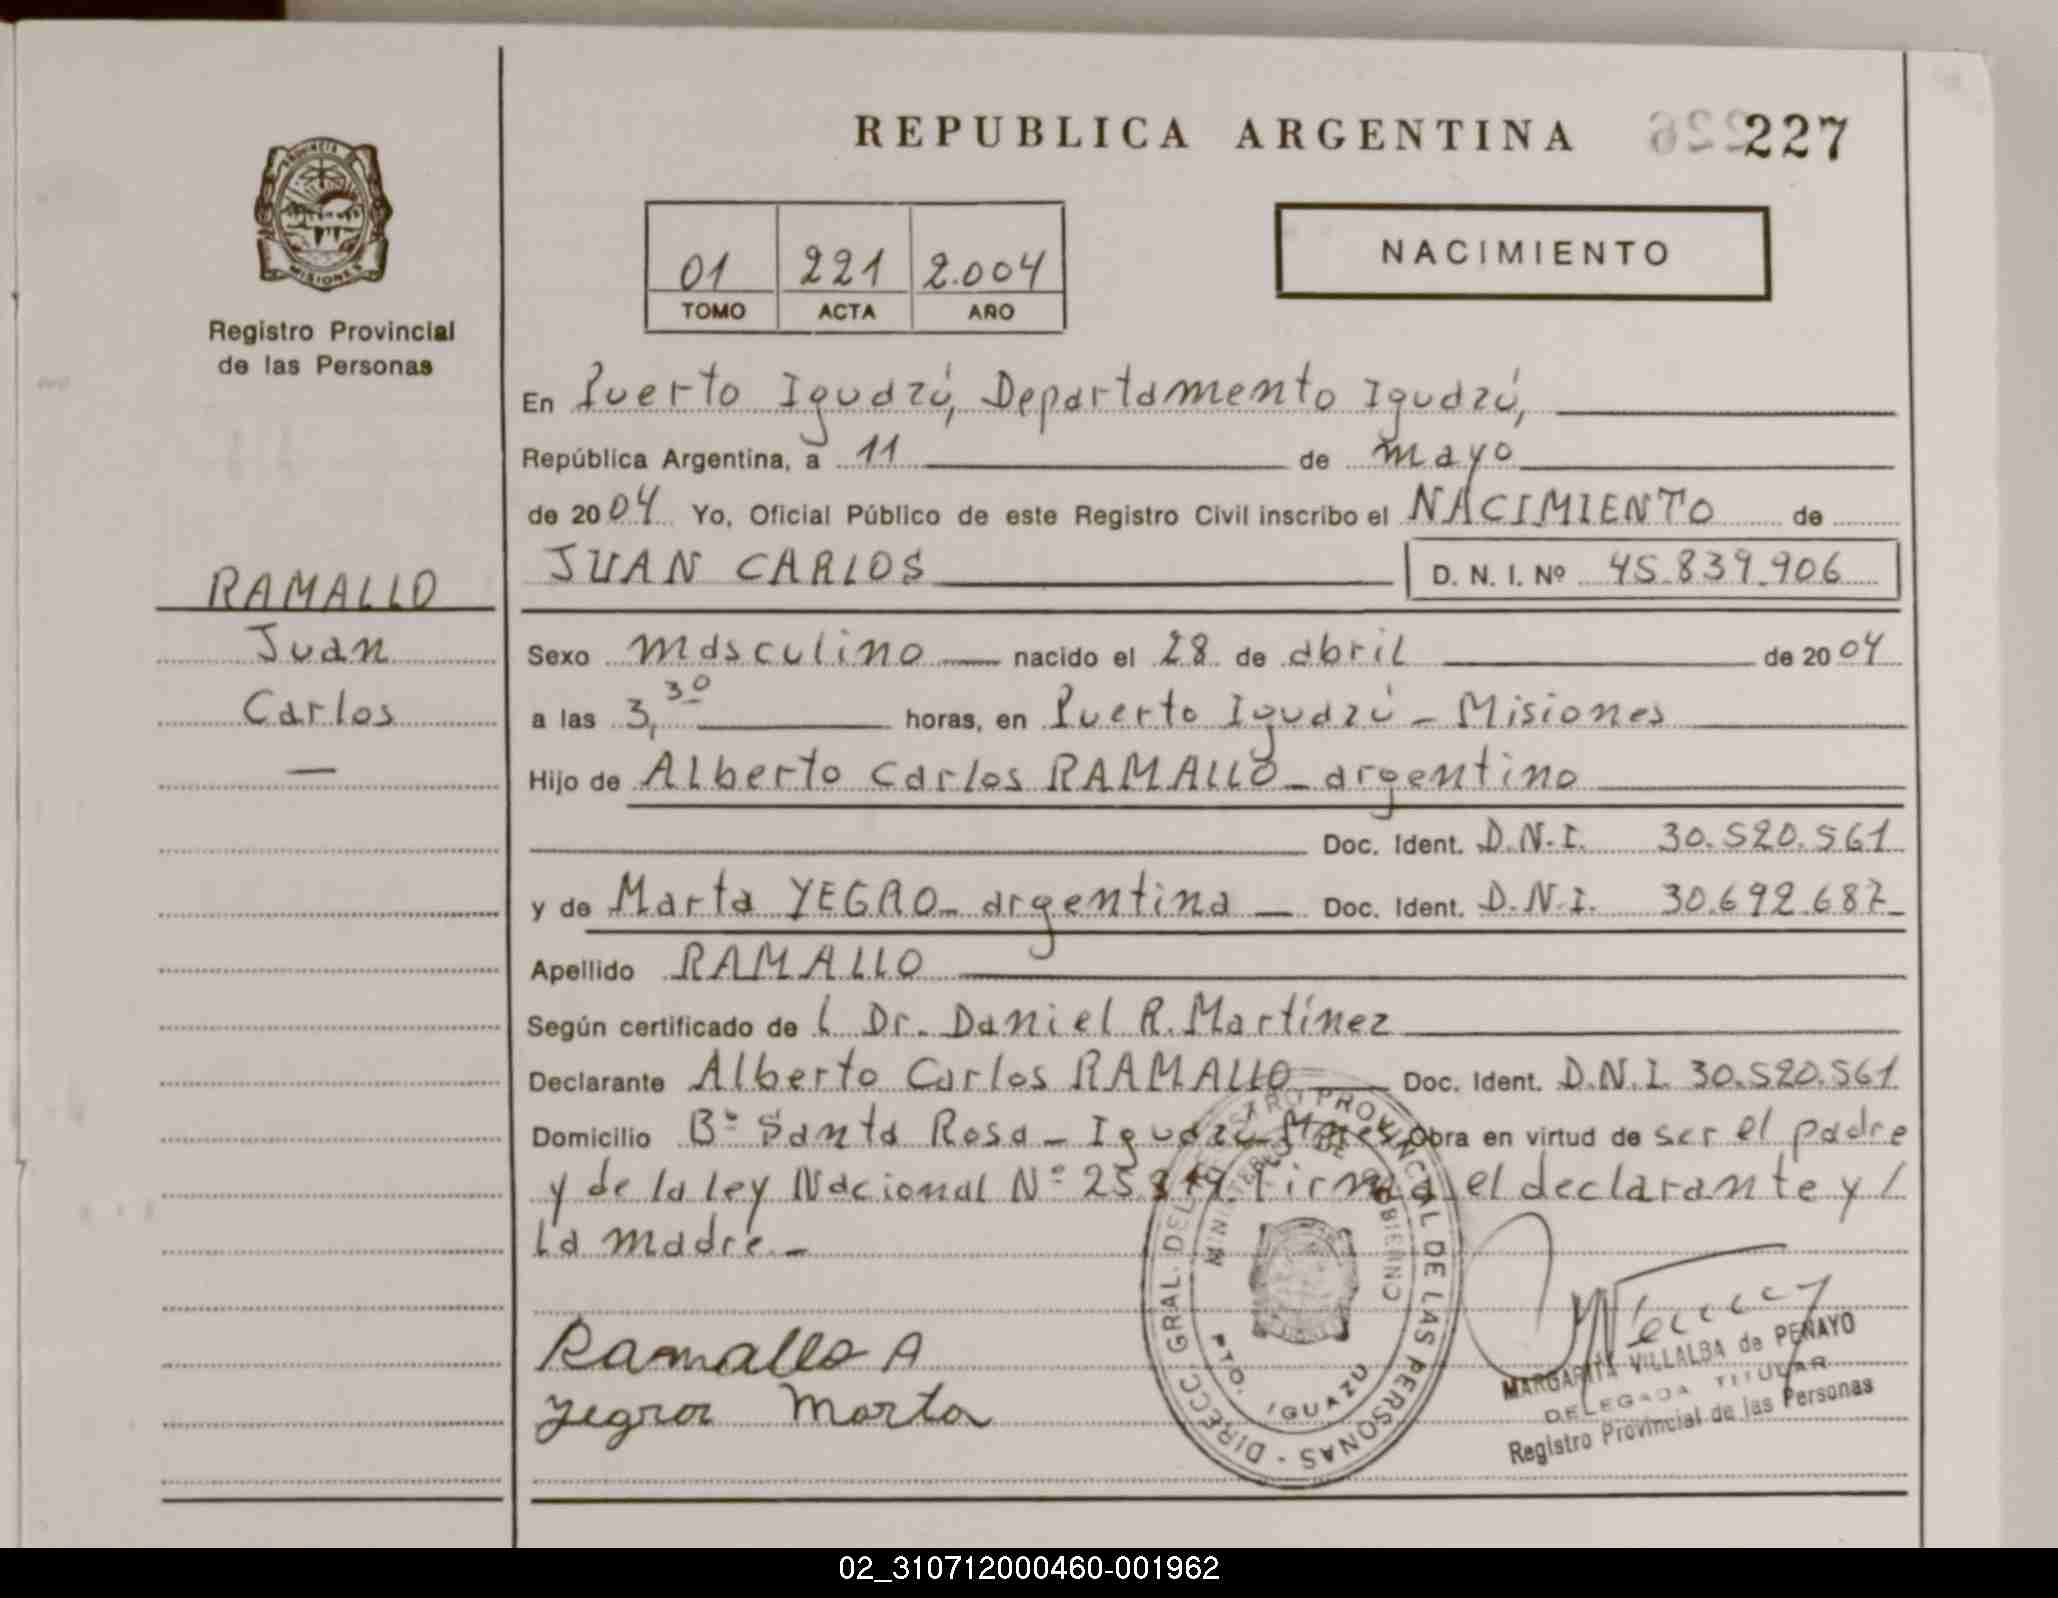 REPUBLICA ARGENTINA 227
PROVINCIA DE MISIONES
Registro Provincial
de las Personas
01 221 2.004
TOMO ACTA AÑO
NACIMIENTO
En Puerto Iguazú, Departamento Iguazú,
República Argentina, a 11 de mayo
de 2004 Yo, Oficial Público de este Registro Civil inscribo el NACIMIENTO de
JUAN CARLOS D. N. I. Nº 45.839.906
RAMALLO
Juan
Carlos
—
Sexo masculino nacido el 28 de abril de 2004
a las 3,30 horas, en Puerto Iguazú - Misiones
Hijo de Alberto Carlos RAMALLO - argentino
Doc. Ident. D.N.I. 30.520.561
y de Marta YEGRO - argentina - Doc. Ident. D.N.I. 30.692.687
Apellido RAMALLO
Según certificado de l Dr. Daniel R. Martínez
Declarante Alberto Carlos RAMALLO Doc. Ident. D.N.I. 30.520.561
Domicilio Bº Santa Rosa - Iguazú Mnes Obra en virtud de ser el padre
y de la ley Nacional Nº 25.819. Firma el declarante y /
la madre. -
Ramallo A
Yegror Marta
DIRECC GRAL. DEL REGISTRO PROVINCIAL DE LAS PERSONAS -
MINISTERIO DE GOBIERNO
PTO. IGUAZU
MARGARITA VILLALBA de PENAYO
DELEGADA TITULAR
Registro Provincial de las Personas
02_310712000460-001962